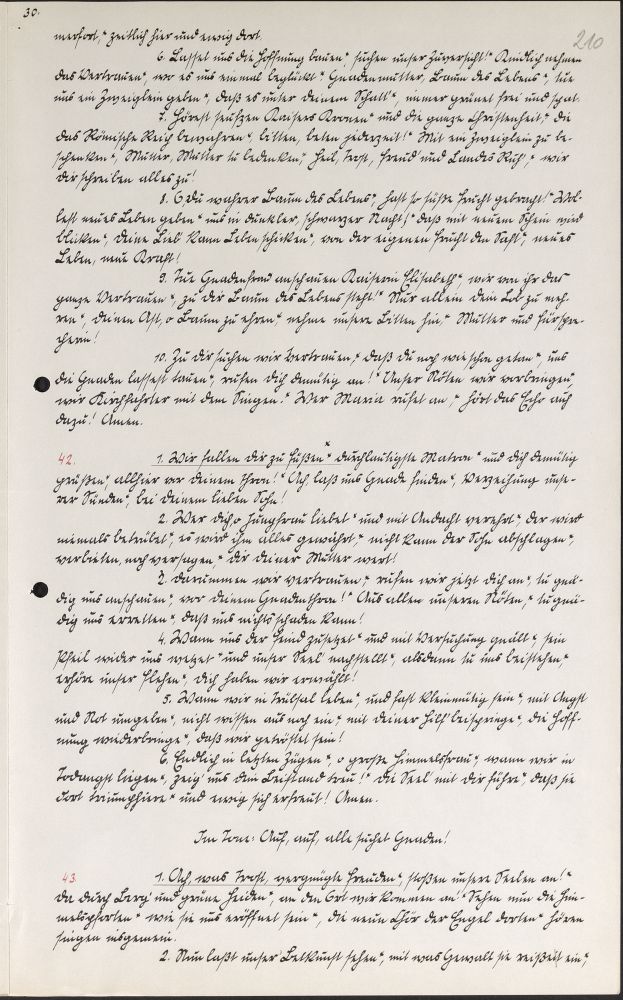 30.
210
immerfort,* zeitlich hier und ewig dort.
6. Lasset uns die Hoffnung bauen,* suchen unser Zuversicht!* Kindlich nehmen
das Vertrauen,* wo es uns einmal beglückt.* Gnadenmutter, Baum des Lebens*, tue
uns ein Zweiglein geben*, daß es unter deinem Schatt'*, immer grünet frei und satt.
7. Hörest seufzen Kaisers Kronen* und die ganze Christenheit,* die
das Römische Reich bewohnen*, bitten, beten jederzeit!* Mit ein Zweiglein zu be-
schenken*, Mutter, Mutter tu bedenken,* Heil, Trost, Freud' und Landes Ruh',* wir
dir schreiben alles zu!
8. O du wahrer Baum des Lebens*, hast so süße Frucht gebracht!* Wol-
lest neues Leben geben* uns in dunkler, schwarzer Nacht,* daß mit neuem Schein wird
blicken*, deine Lieb' kann Leben schicken*, von der eigenen Frucht den Saft*, neues
Leben, neue Kraft!
9. Tue Gnadenfroh anschauen Kaiserin Elisabeth*, wir von ihr das
ganze Vertrauen*, zu dir Baum des Lebens steht!* Nur allein dein Lob zu meh-
ren*, deinen Ast, o Baum zu ehren,* nehme unsere Bitten hin,* Mutter und Fürspre-
cherin!
10. Zu dir suchen wir Vertrauen,* daß du noch wie schon getan*, uns
die Gnaden lassest tauen*, rufen dich demütig an!* Unser Nöten wir vorbringen,*
wir Kirchfahrter mit dem Singen.* Wer Maria rufet an,* hört das Echo auch
dazu! Amen.
42. 1. Wir fallen dir zu Füßen* durchlautigste Matron* und dich demütig
grüßen,* allhier vor deinem Thron!* Ach, laß uns Gnade finden*, Verzeihung unse-
rer Sünden*, bei deinem lieben Sohn!
2. Wer dich, o Jungfrau liebet* und mit Andacht verehrt*, der wird
niemals betrübet*, es wird ihm alles gewährt,* nicht kann der Sohn abschlagen*,
verbieten, noch versagen* dir deiner Mutter wert!
3. Darummen wir vertrauen,* rufen wir jetzt dich an*, tu gnä-
dig uns anschauen*, vor deinem Gnadenthron!* Aus allen unseren Nöten,* tu gnä-
dig uns erretten*, daß uns nichts schaden kann!
4. Wann uns der Feind zusetzet* und mit Versuchung quält*, sein
Pfeil wider uns wetzet* und unser Seel' nachstellt*, alsdann tu uns beistehen,*
erhöre unser Flehen*, dich haben wir erwählt!
5. Wann wir in Trübsal leben*, und fast kleinmütig sein*, mit Angst
und Not umgeben*, nicht wissen aus noch ein,* mit deiner Hilf' beispringe*, die Hoff-
nung wiederbringe*, daß wir getröstet sein!
6. Endlich in letzten Zügen*, o große Himmelsfrau*, wann wir in
Todangst liegen*, zeig' uns dein Beistand treu!* Die Seel' mit dir führe*, daß sie
dort triumphiere* und ewig sich erfreut! Amen.
Im Tone: Auf, auf, alle suchet Gnaden!
43. 1. Ach, was Trost, vergnügte Freuden*, stoßen unsere Seelen an!*
Da durch Berg' und grüne Heiden*, an den Ort wir kommen an.* Sehen nun die Him-
melspforten* wie sie uns eröffnet sein*, die neun Chör der Engel dorten* hören
singen insgemein.
2. Nun laßt unser Betkunst sehen*, mit was Gewalt sie reißet ein*,